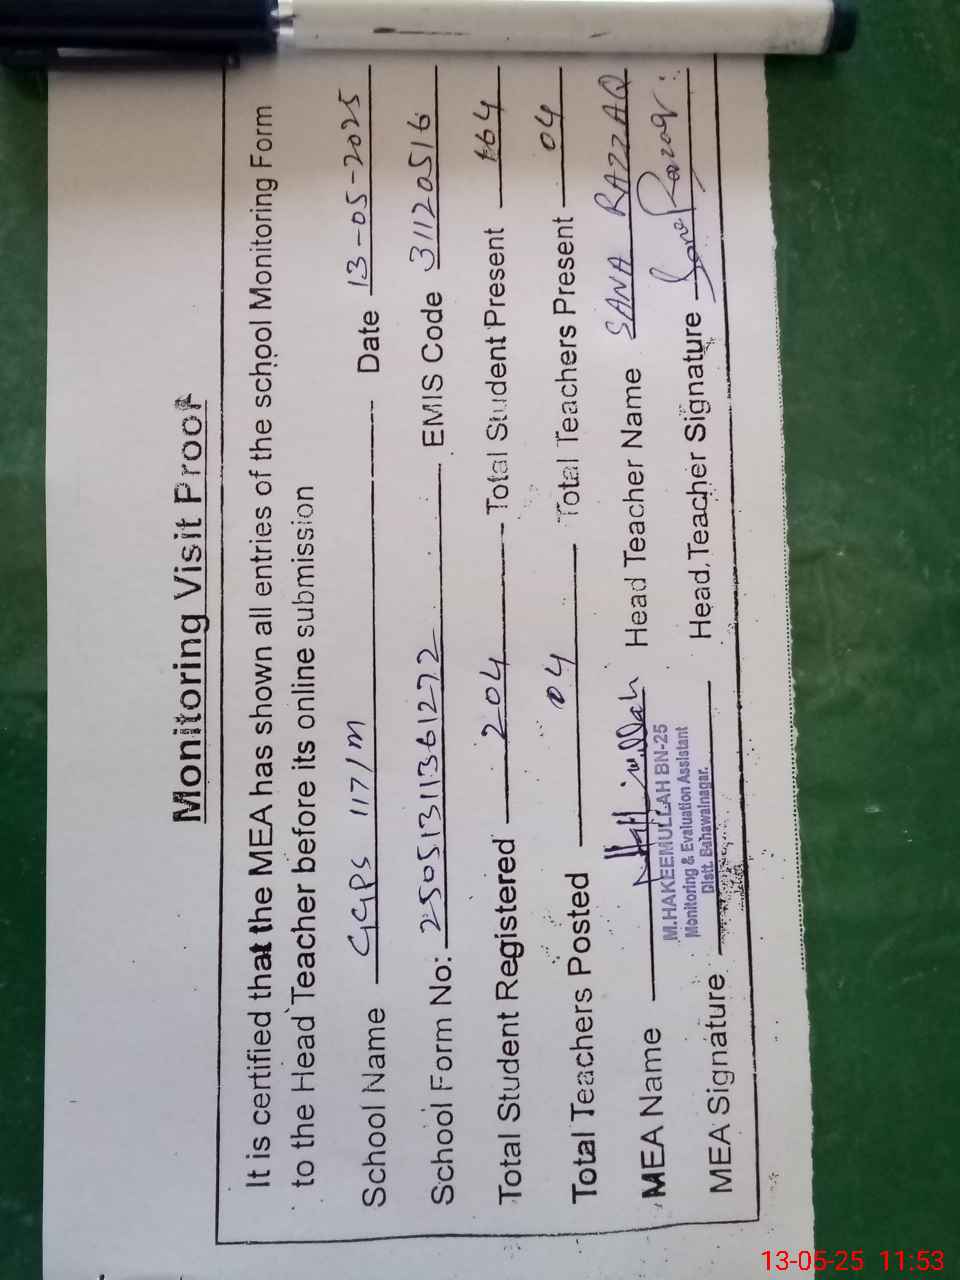 Monitoring Visit Proof
It is certified that the MEA has shown all entries of the school Monitoring Form
to the Head Teacher before its online submission
School Name GGPS 117/M Date 13-05-2025
School Form No: 25051311361272 EMIS Code 31120516
Total Student Registered 204 Total Student Present 164
Total Teachers Posted 04 Total Teachers Present 04
MEA Name Head Teacher Name SANA RAZZAQ
M.HAKEEMULLAH BN-25
Monitoring & Evaluation Assistant
Distt. Bahawalnagar.
MEA Signature Head Teacher Signature Sana Razzaq
13-05-25 11:53